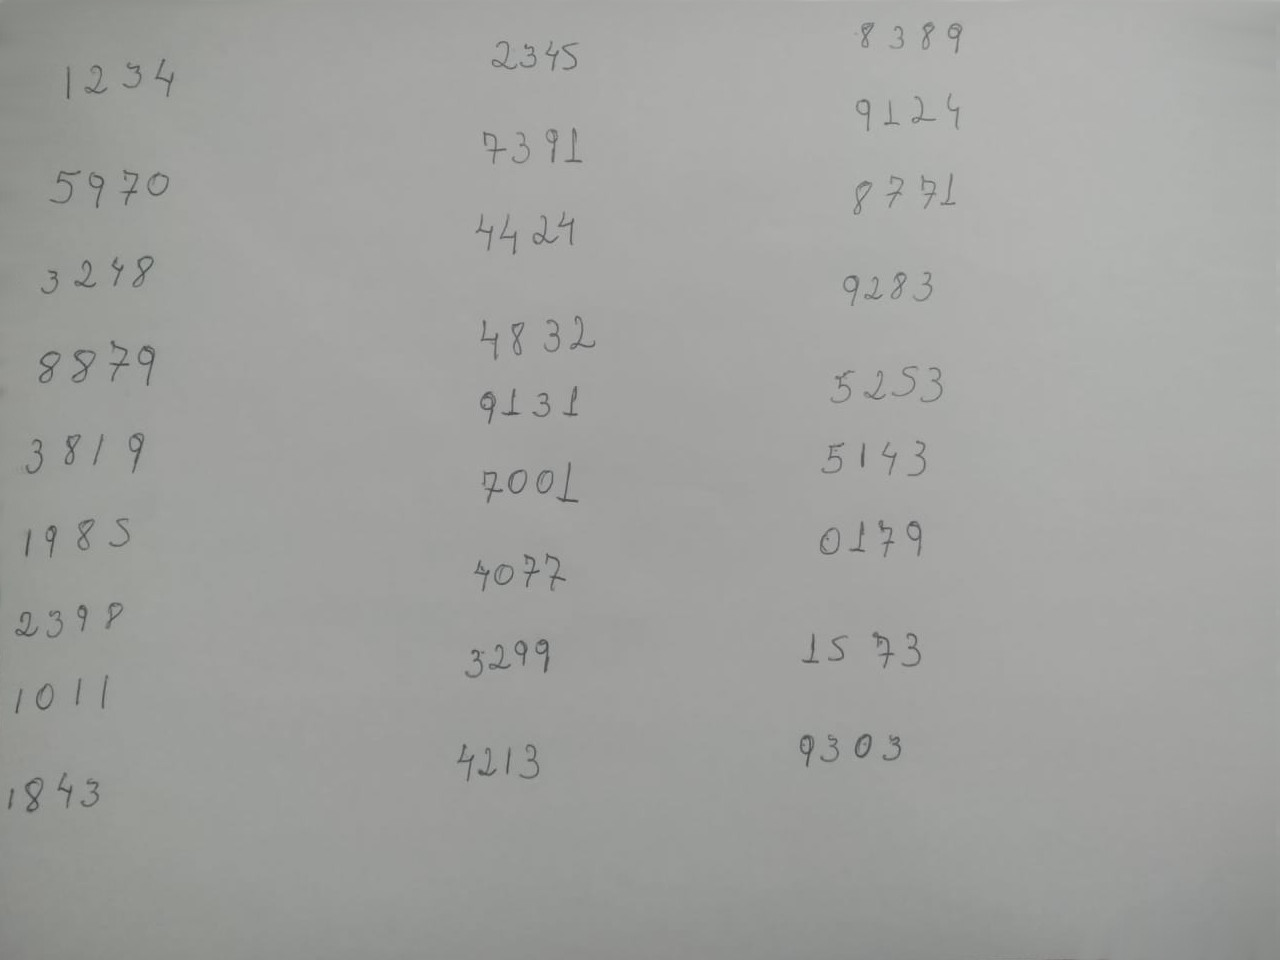 1234
5970
3248
8879
3819
1985
2398
1011
1843
2345
7391
4424
4832
9131
7001
4077
3299
4213
8389
9124
8771
9283
5253
5143
0179
1573
9303